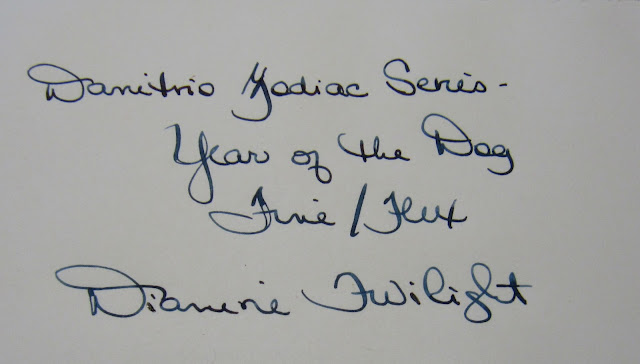 Danitrio Zodiac Series -
Year of the Dog
Fine/Flex
Diamine Twilight